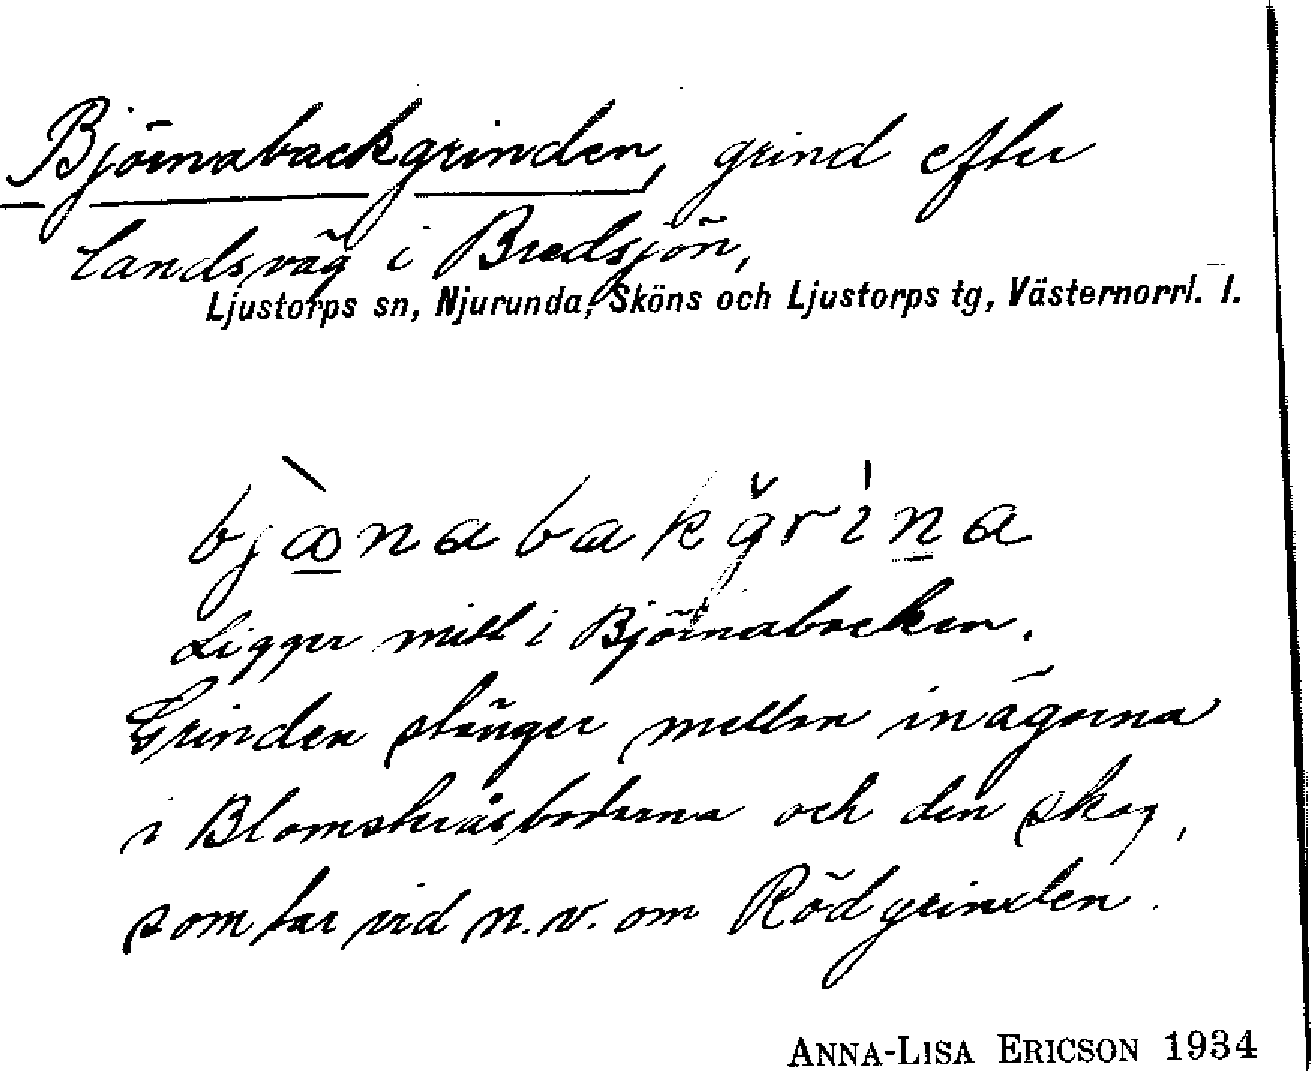 Björnabackgrinden, grind efter
landsväg i Bredsjön,
Ljustorps sn, Njurunda, Sköns och Ljustorps tg, Västernorrl. l.
bjæ̀nabakğrína
Ligger mitt i Björnabacken.
Grinden stänger mellan inägorna
i Blomsteråsbodarna och den skog,
som tar vid n.v. om Rödgrinden.
ANNA-LISA ERICSON 1934